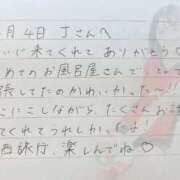 月4日 Tさんへ
いに来てくれて ありがとう
めてのお風呂屋さんで
張してたのかわいかった〜!!
こにこしながら、たくさんお話
てくれてうれしかった
西旅行、楽しんでね♡